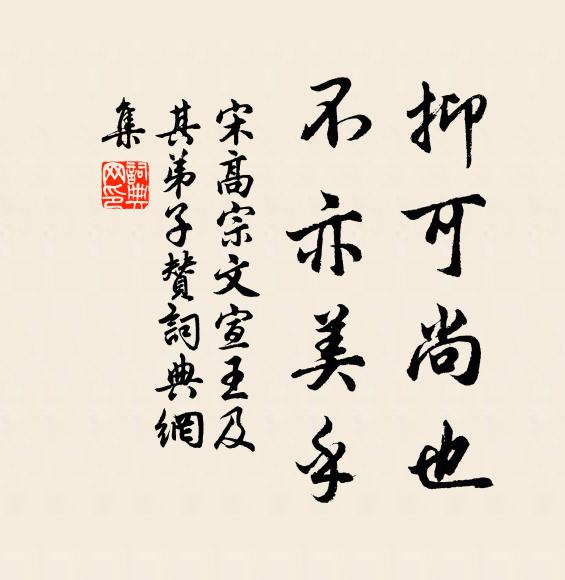 抑可尚也
不亦美乎
宋高宗文宣王及
其弟子贊詞典網
集
詞典
网印